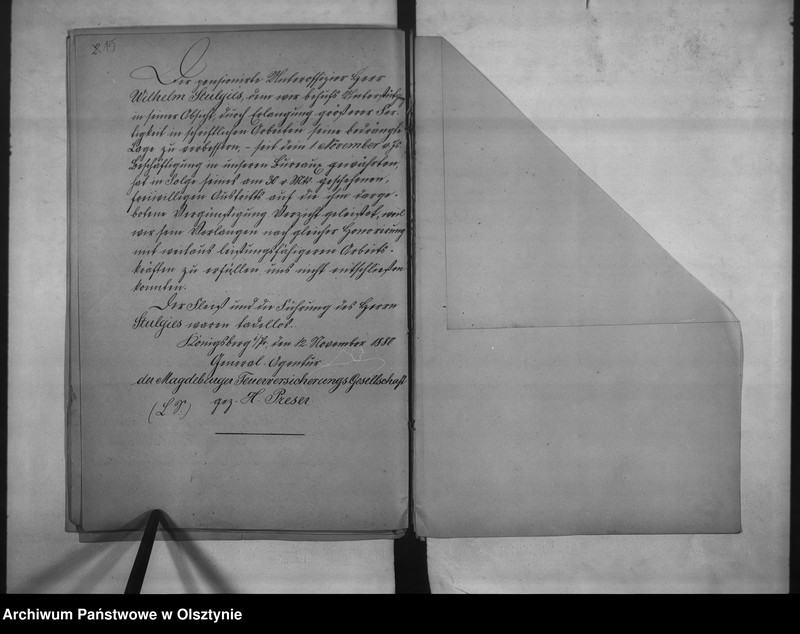 15
Der pensionirte Unteroffizier Herr
Wilhelm Stulgies, dem wir behufs Unterstützg
in seiner Absicht, durch Erlangung größerer Fer-
tigkeit in schriftlichen Arbeiten seine bedrängte
Lage zu verbessern, – seit dem 1 November v. Js.
Beschäftigung in unseren Büreaux gewährten,
hat in Folge seines am 30 v. Mts. geschehenen,
freiwilligen Austritts auf die ihm darge-
botene Vergünstigung Verzicht geleistet, weil
wir sein Verlangen nach gleicher Honorirung
mit weitaus leistungsfähigeren Arbeits-
kräften zu erfüllen uns nicht entschließen
konnten.
Der Fleiß und die Führung des Herrn
Stulgies waren tadellos.
Königsberg i/Pr, den 12 November 1880
General-Agentur
der Magdeburger Feuerversicherungs Gesellschaft
(L. S.) gez. H. Preser
Archiwum Państwowe w Olsztynie